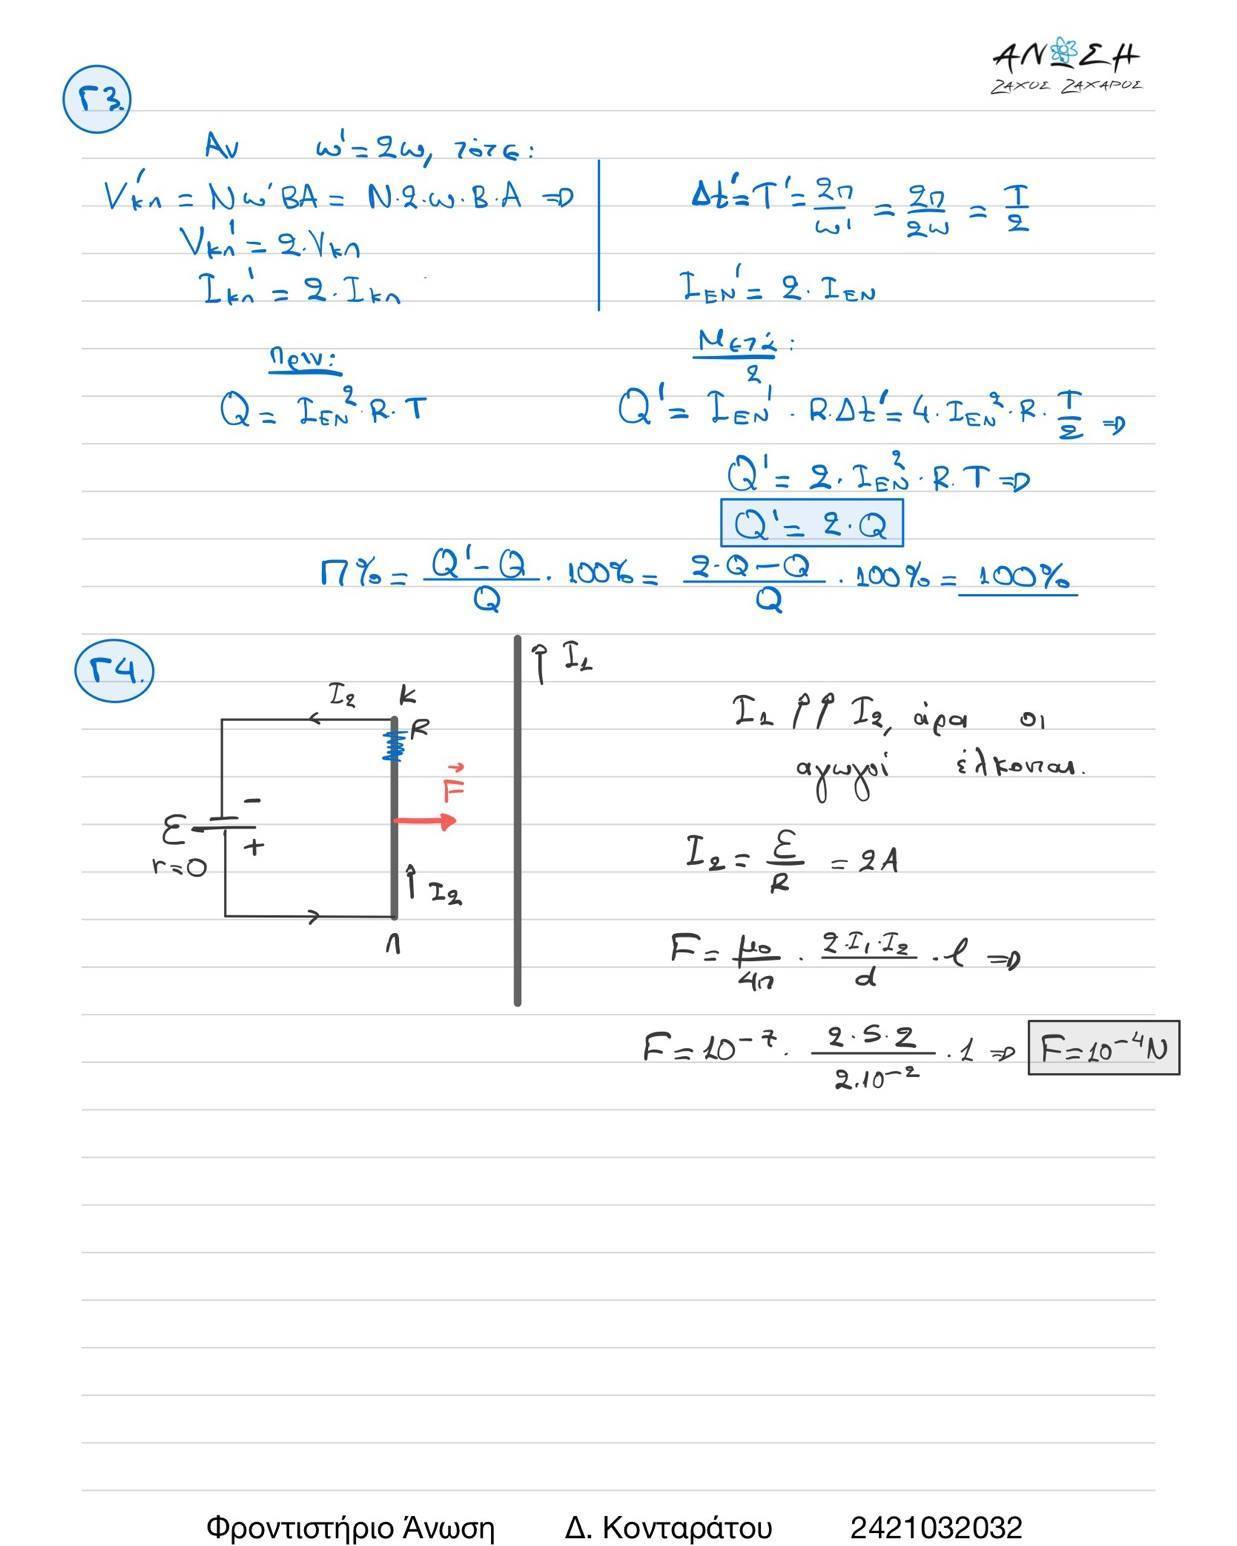 ΑΝΩΣΗ
ΖΑΧΟΣ ΖΑΧΑΡΟΣ
Γ3.
Αν ω' = 2ω, τότε:
Vκπ' = Nω'BA = N·2·ω·B·A ⇒
Vκπ' = 2·Vκπ
Iκπ' = 2·Iκπ
Δt' = T' = 2π/ω' = 2π/2ω = T/2
IΕΝ' = 2·IΕΝ
Πριν:
Q = IΕΝ²·R·T
Μετά:
Q' = IΕΝ'²·R·Δt' = 4·IΕΝ²·R·T/2 ⇒
Q' = 2·IΕΝ²·R·T ⇒
Q' = 2·Q
Π% = (Q'-Q)/Q · 100% = (2·Q-Q)/Q · 100% = 100%
Γ4.
I₂ K
R
F⃗
-
ℰ
+
r=0
I₂
Λ
I₁
I₁ ↑↑ I₂, άρα οι
αγωγοί έλκονται.
I₂ = ℰ/R = 2A
F = μ₀/4π · 2·I₁·I₂/d · l ⇒
F = 10⁻⁷ · 2·5·2/2·10⁻² · 1 ⇒ F = 10⁻⁴N
Φροντιστήριο Άνωση Δ. Κονταράτου 2421032032